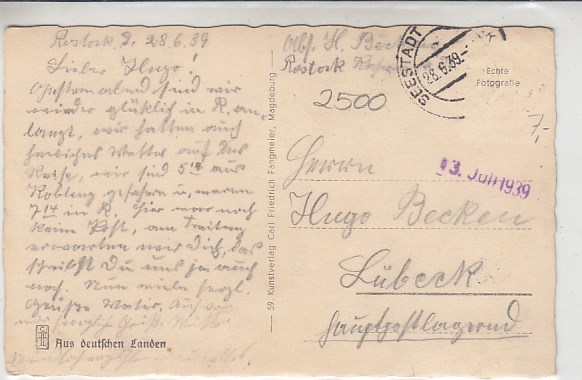 Rostock, d. 28.6.39
Lieber Hugo!
Gestern abend sind wir
wieder glücklich in R. an-
langt, wir hatten auch
herliches Wetter auf der
Reise, wir sind 5 14 aus
Koblenz gefahren u. waren
7 14 in R. hier war noch
keine Post, am Freitag
erwarten wir Dich, das
schreibst Du uns ja auch
noch. Nun viele herzl.
Grüße Vater. Auch von
mir herzliche Grüße Mutter
Aus deutschen Landen
59. Kunstverlag Carl Friedrich Fangmeier, Magdeburg
Abs. H. Becken
Rostock
2500
SEESTADT
28.6.39.
Echte
Fotografie
7,-
3. Juli 1939
Herrn
Hugo Becken
Lübeck
Hauptpostlagernd